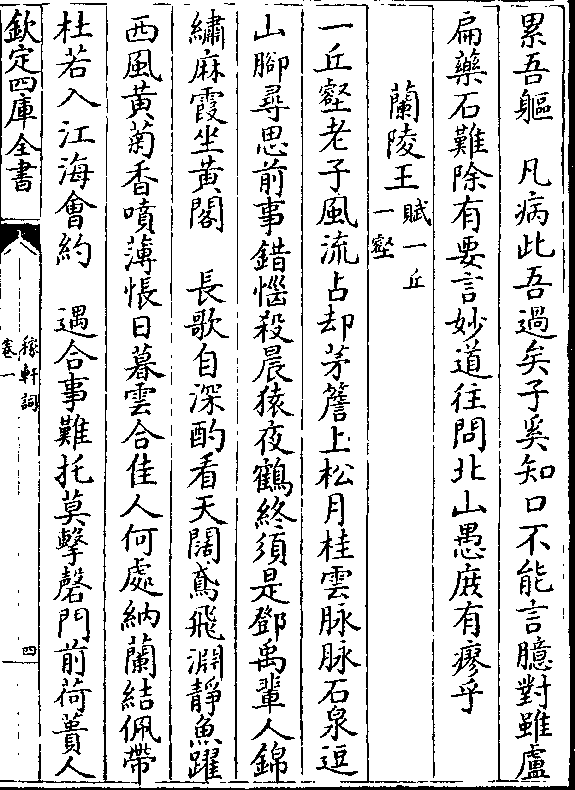 累吾軀　凡病此吾過矣子奚知口不能言臆對雖盧
扁藥石難除有要言妙道往問北山愚庻有瘳乎
蘭陵王賦一丘一壑
一丘壑老子風流占却茅簷上松月桂雲脉脉石泉逗
山腳尋思前事錯惱殺晨猿夜鶴終須是鄧禹輩人錦
繡麻霞坐黄閣　長歌自深酌看天闊鳶飛淵靜魚躍
西風黄菊香噴薄悵日暮雲合佳人何處納蘭結佩帶
杜若入江海會約　遇合事難托莫擊磬門前荷蕢人
欽定四庫全書
稼軒詞
卷一
四